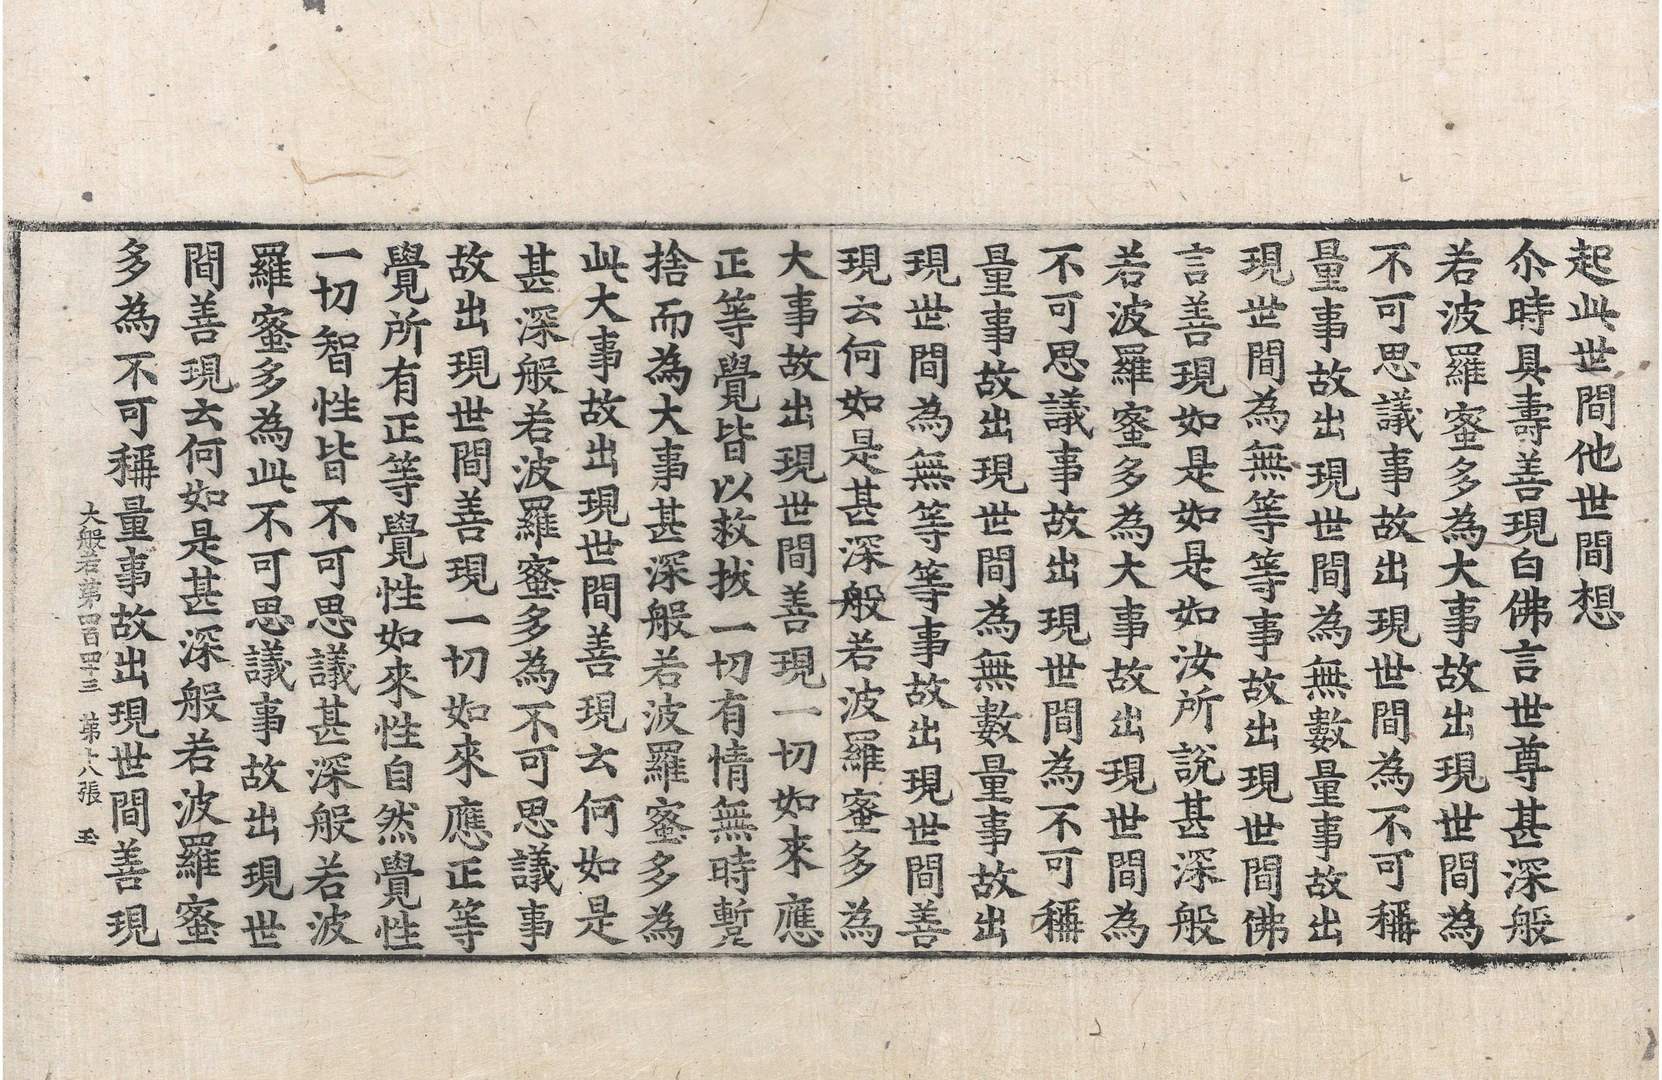 起此世間他世間想
尒時具壽善現白佛言世尊甚深般
若波羅蜜多為大事故出現世間為
不可思議事故出現世間為不可稱
量事故出現世間為無數量事故出
現世間為無等等事故出現世間佛
言善現如是如是如汝所說甚深般
若波羅蜜多為大事故出現世間為
不可思議事故出現世間為不可稱
量事故出現世間為無數量事故出
現世間為無等等事故出現世間善
現云何如是甚深般若波羅蜜多為
大事故出現世間善現一切如來應
正等覺皆以救拔一切有情無時暫
捨而為大事甚深般若波羅蜜多為
此大事故出現世間善現云何如是
甚深般若波羅蜜多為不可思議事
故出現世間善現一切如來應正等
覺所有正等覺性如來性自然覺性
一切智性皆不可思議甚深般若波
羅蜜多為此不可思議事故出現世
間善現云何如是甚深般若波羅蜜
多為不可稱量事故出現世間善現
大般若第四百四十三 第十八張 玉